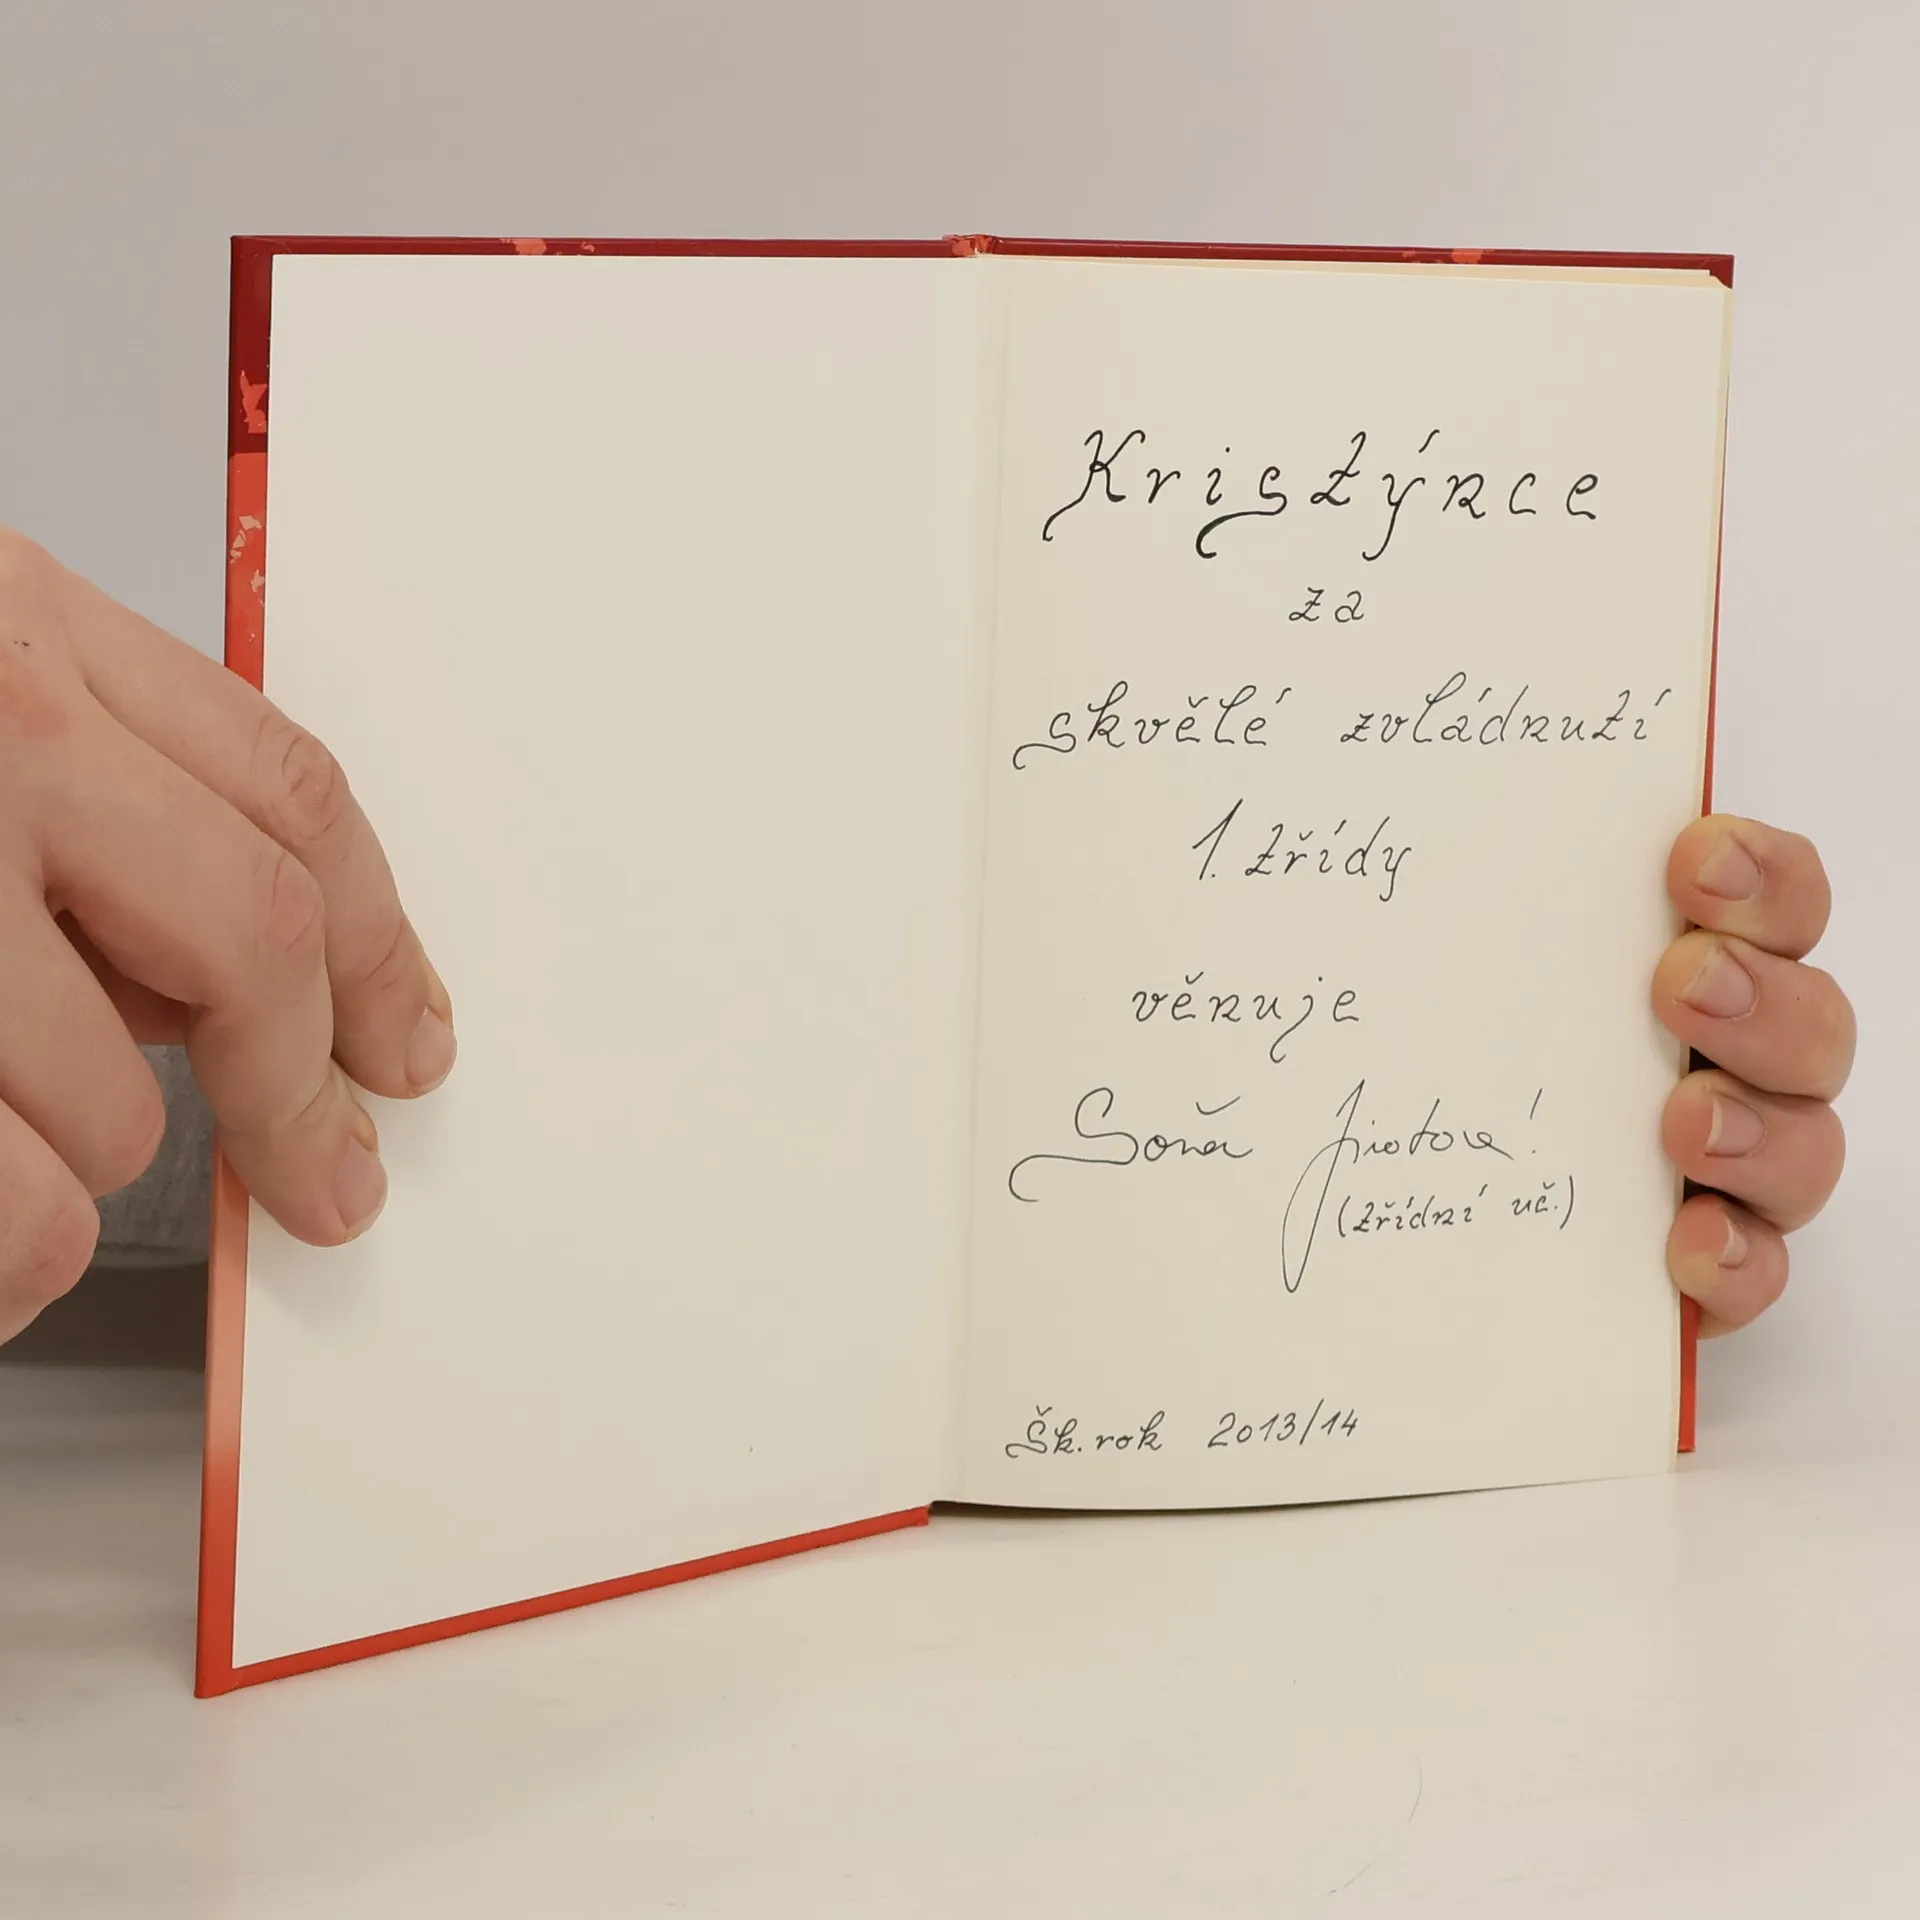 Kristýnce
za
skvělé zvládnutí
1. třídy
věnuje
Soňa
(třídní uč.)
Šk. rok 2013/14